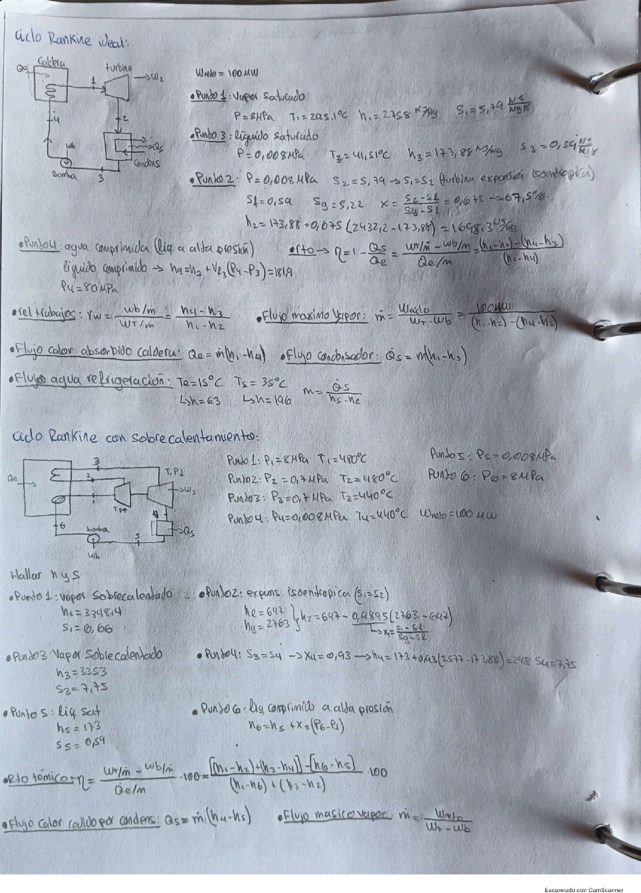 Ciclo Rankine ideal:
Caldera
turbina
Qe
1
→W2
2
4
Qs
Condens
Wb
Bomba
3
Wneto = 100 MW
•Punto 1: Vapor saturado
P=8MPa T1=295,1°C h1=2758 KJ/Kg S1=5,79
•Punto 3: líquido saturado
P=0,008MPa T3=41,51°C h3=173,88 KJ/Kg s3=0,59
•Punto 2: P=0,008MPa S2=5,79→S1=S2 (turbina expansión isoentrópica)
Sf=0,59 Sg=5,22 x = S2-Sf / Sg-Sf = 0,675 → 67,5%
h2=173,88+0,675(2432,2-173,88)=1698,3
•Punto 4: agua comprimida (liq a alta presión)
líquido comprimido → h4=h3+Vf3(P4-P3)=181,9
P4=80MPa
•rto → η=1-Qs/Qe = (Wt/m - Wb/m)/(Qe/m) = (h1-h2)-(h4-h3)/(h1-h4)
•rel trabajos: rw = (Wb/m)/(Wt/m) = (h4-h3)/(h1-h2)
•Flujo masimo vapor: ṁ = Wneto/(Wt-Wb) = 100MW/((h1-h2)-(h4-h3))
•Flujo calor absorbido caldera: Qe=ṁ(h1-h4) •Flujo condensador: Qs=ṁ(h1-h3)
•Flujo agua refrigeración: Te=15°C Ts=35°C m = Qs/(hs-he)
↳h=63 ↳h=146
Ciclo Rankine con sobrecalentamiento:
3
T.P↓
Qe
2
1
T.P.P
→W2
4
→Qs
6
bomba
5
Wb
Punto 1: P1=8MPa T1=480°C
Punto 2: P2=0,7MPa T2=480°C
Punto 3: P3=0,7MPa T3=440°C
Punto 4: P4=0,008MPa T4=440°C Wneto=100 MW
Punto 5: P5=0,008MPa
Punto 6: P6=8MPa
Hallar h y s
•Punto 1: vapor sobrecalentado
h1=3348,4
s1=6,66
•Punto 2: expans isoentropica (s1=s2)
hg=2763 } h2=697-0,9895(2763-697)
↳x=
•Punto 3: Vapor Sobrecalentado
h3=3353
s3=7,75
•Punto 4: S3=S4 → X4=0,93 → h4=173+0,93(2577-173,88)= S4=7,75
•Punto 5: liq sat
h5=173
s5=0,59
•Punto 6: liq comprimido a alta presión
h6=h5+x5(P6-P5)
•Rto térmico: η = (Wt/ṁ - Wb/ṁ)/(Qe/ṁ) ·100 = ([h1-h2)+(h3-h4)]-[h6-h5])/((h1-h6)+(h3-h2)) ·100
•Flujo calor cedido por condens: Qs=ṁ(h4-h5) •Flujo masico vapor: ṁ = Wneto/(Wt-Wb)
Escaneado con CamScanner